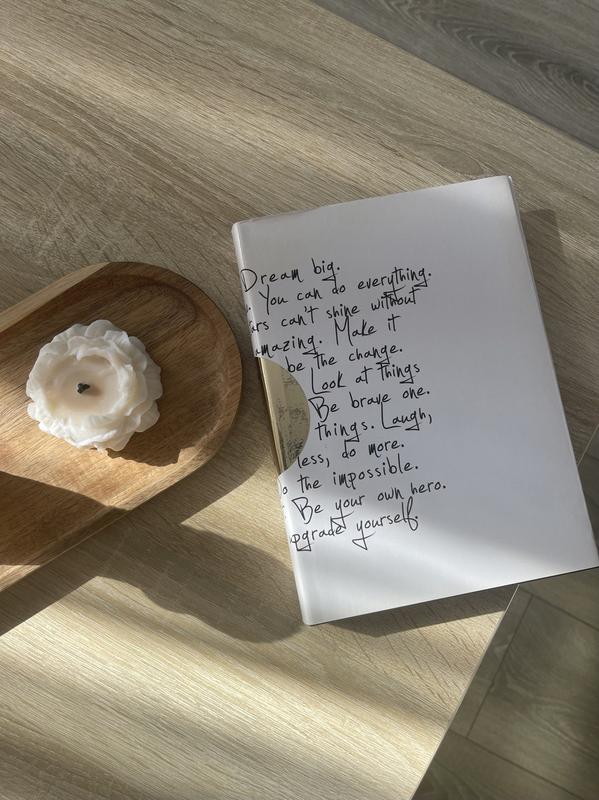 Dream big.
. You can do everything.
ars can't shine without
amazing. Make it
be the change.
Look at things
Be brave one.
things. Laugh,
less, do more.
o the impossible.
Be your own hero.
pgrade yourself.